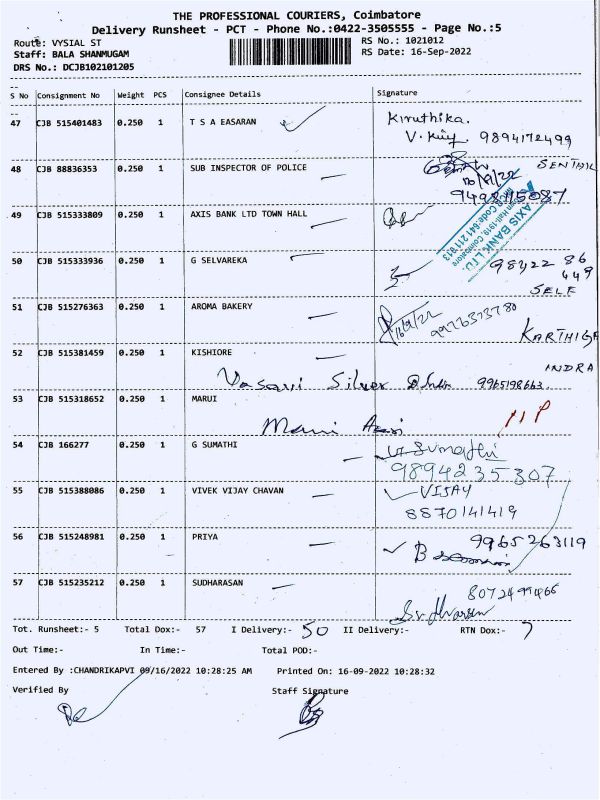 THE PROFESSIONAL COURIERS, Coimbatore
Delivery Runsheet - PCT - Phone No.:0422-3505555 - Page No.:5
Route: VYSIAL ST
RS No.: 1021012
Staff: BALA SHANMUGAM
RS Date: 16-Sep-2022
DRS No.: DCJB102101205
S No Consignment No Weight PCS Consignee Details Signature
47 CJB 515401483 0.250 1 T S A EASARAN Kiruthika.
9894172499
48 CJB 88836353 0.250 1 SUB INSPECTOR OF POLICE SENTHIL
16/9/22
49 CJB 515333809 0.250 1 AXIS BANK LTD TOWN HALL
AXIS BANK LTD.
50 CJB 515333936 0.250 1 G SELVAREKA 98422 86
449
SELF
51 CJB 515276363 0.250 1 AROMA BAKERY
16/9/22
KARTHIGA
52 CJB 515381459 0.250 1 KISHIORE INDRA
Vasavi Silver 9965198663.
53 CJB 515318652 0.250 1 MARUI
54 CJB 166277 0.250 1 G SUMATHI G Sumathi
9894235307
55 CJB 515388086 0.250 1 VIVEK VIJAY CHAVAN VIJAY
8870141419
56 CJB 515248981 0.250 1 PRIYA 9965263119
57 CJB 515235212 0.250 1 SUDHARASAN
Tot. Runsheet:- 5 Total Dox:- 57 I Delivery:- 50 II Delivery:- RTN Dox:- 7
Out Time:- In Time:- Total POD:-
Entered By :CHANDRIKAPVI 09/16/2022 10:28:25 AM Printed On: 16-09-2022 10:28:32
Verified By Staff Signature